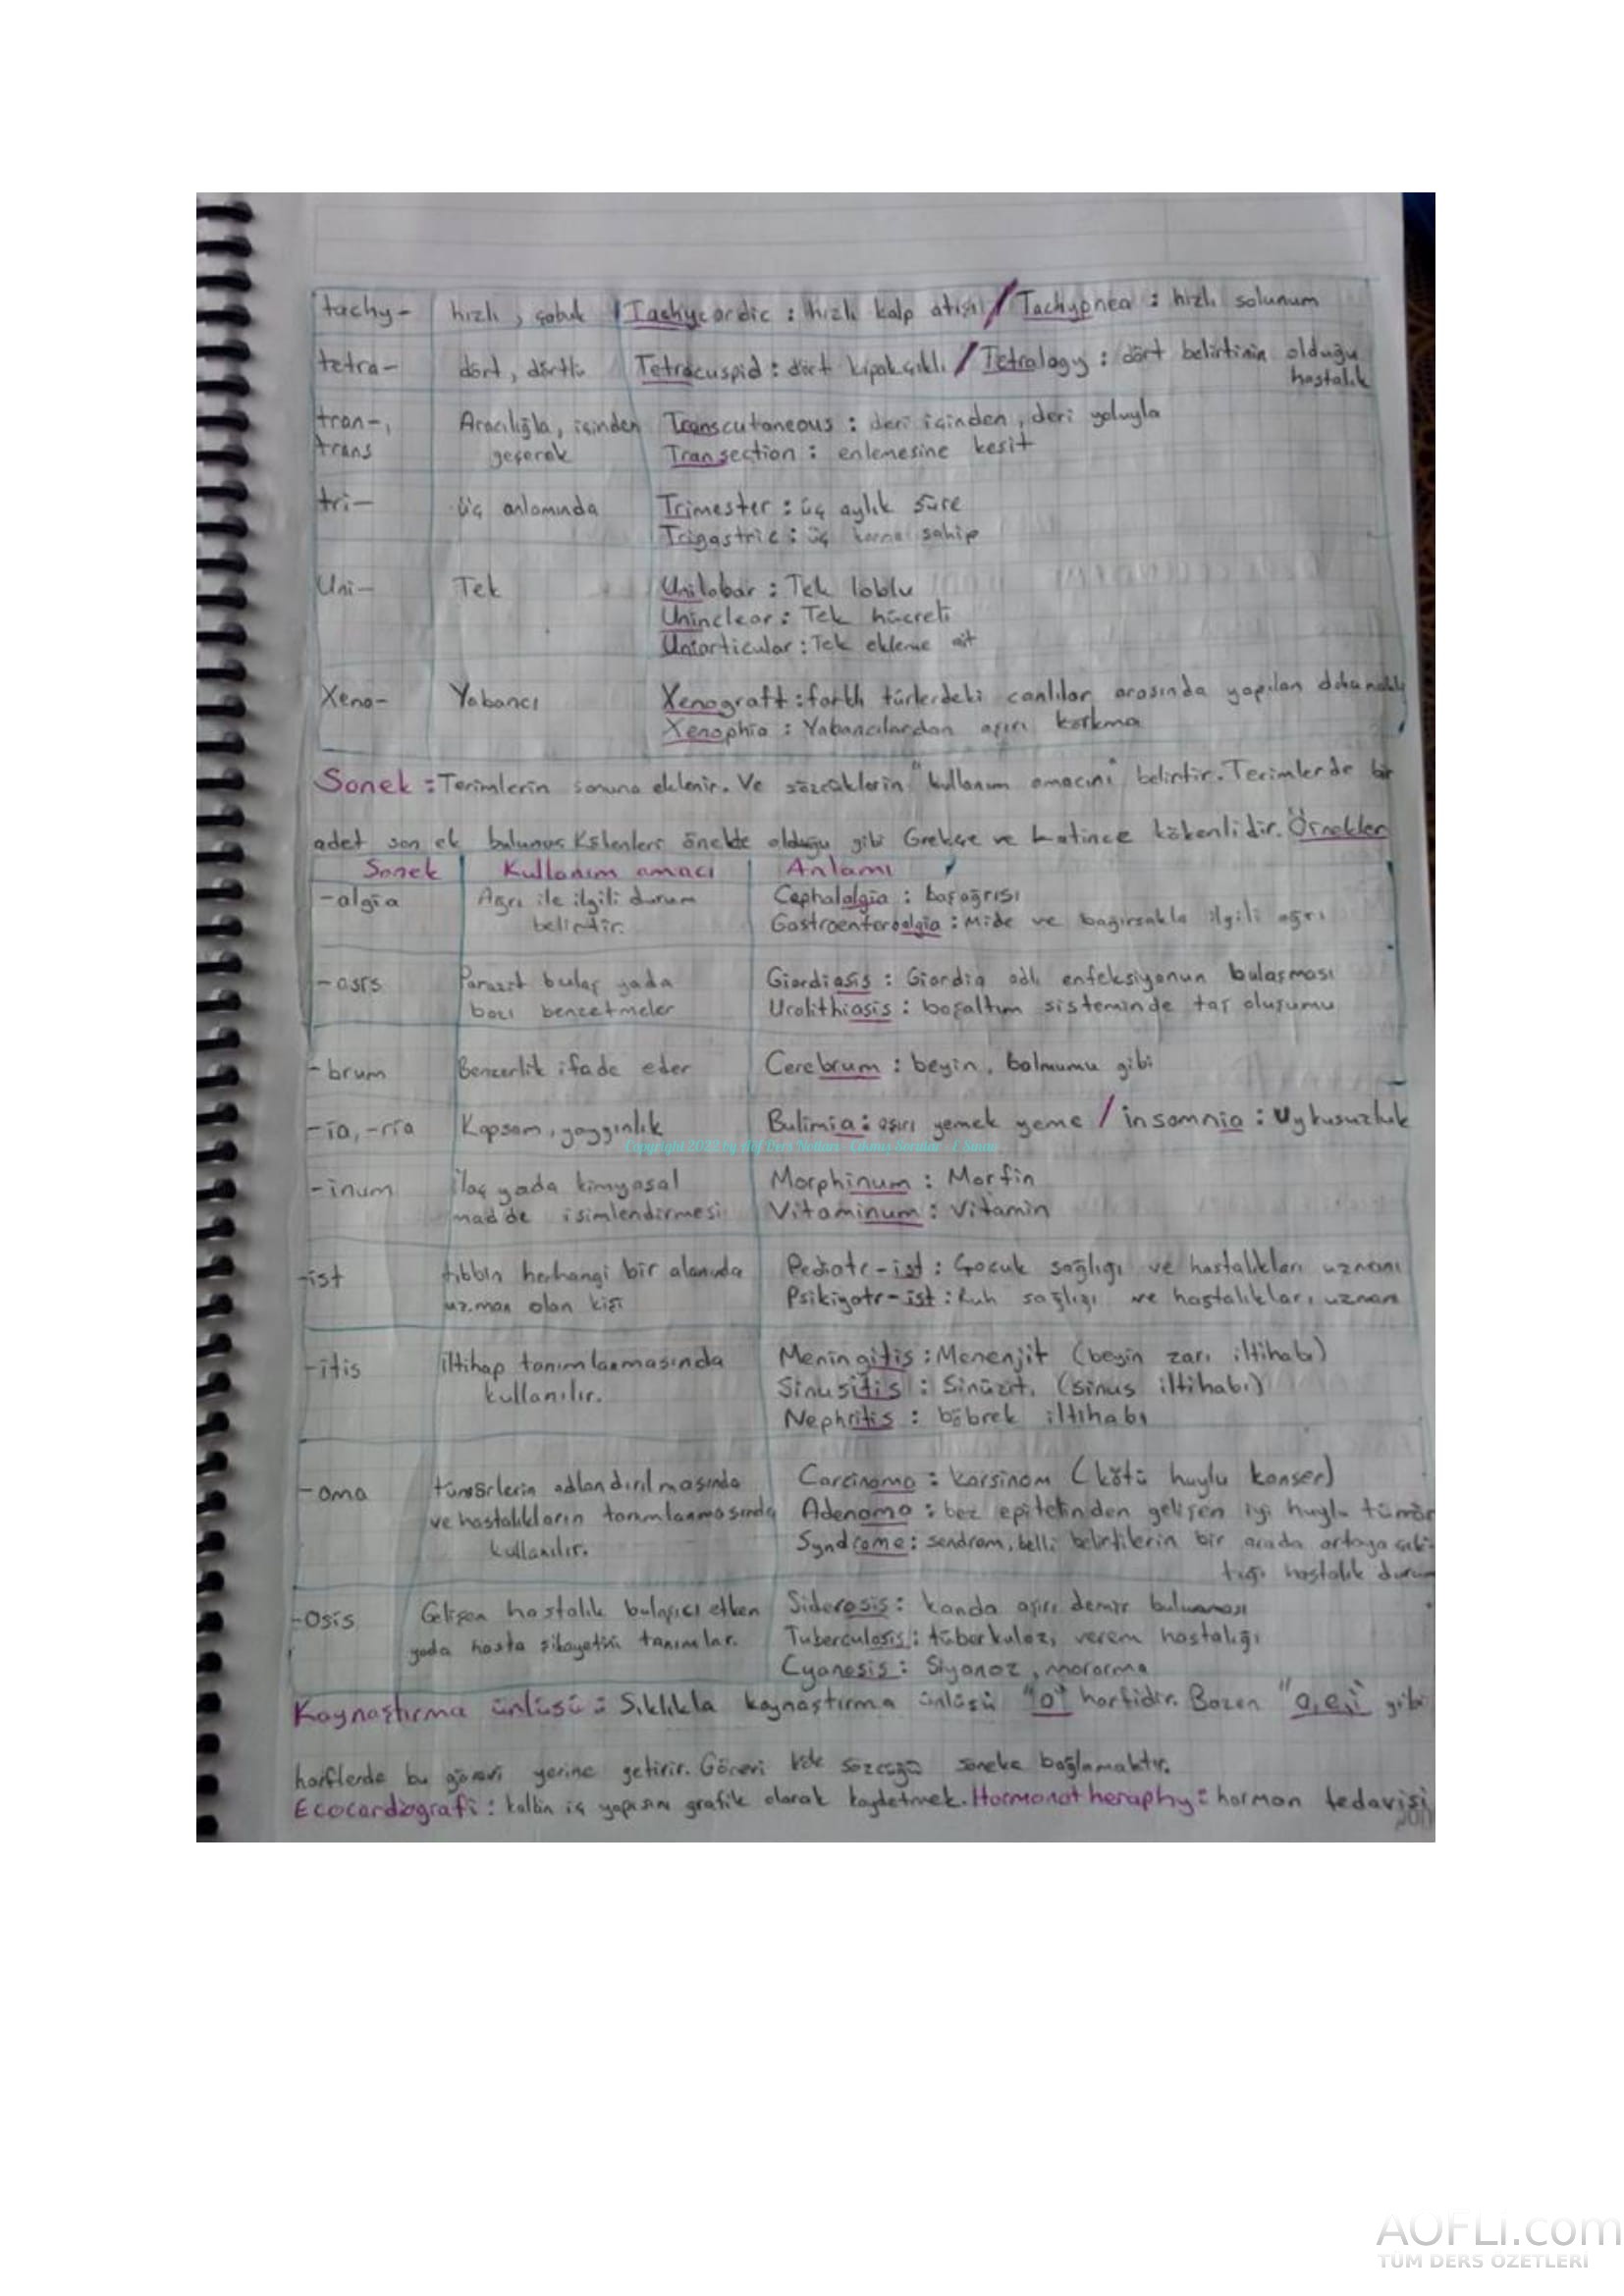 tachy- hızlı, çabuk Tachycardic : hızlı kalp atışı / Tachypnea : hızlı solunum
tetra- dört, dörtlü Tetracuspid : dört kapakçıklı / Tetralogy : dört belirtinin olduğu
hastalık
tran-, Aracılığla, içinden Transcutaneous : deri içinden, deri yoluyla
trans geçerek Transection : enlemesine kesit
tri- üç anlamında Trimester : üç aylık süre
Trigastric : üç sahip
Uni- Tek Unilobar : Tek loblu
Uninclear : Tek hücreli
Uniarticular : Tek ekleme ait
Xeno- Yabancı Xenograft : farklı türlerdeki canlılar arasında yapılan doku nakli
Xenophia : Yabancılardan aşırı korkma
Sonek : Terimlerin sonuna eklenir. Ve sözcüklerin "kullanım amacını" belirtir. Terimlerde bir
adet son ek bulunur. Kökenleri önekte olduğu gibi Grekçe ve Latince kökenlidir. Örnekler
Sonek Kullanım amacı Anlamı
-algia Ağrı ile ilgili durum Cephalalgia : başağrısı
belirtir. Gastroenteroalgia : Mide ve bağırsakla ilgili ağrı
-asis Parazit bulaş yada Giardiasis : Giardia adlı enfeksiyonun bulaşması
bazı benzetmeler Urolithiasis : boşaltım sisteminde taş oluşumu
-brum Benzerlik ifade eder Cerebrum : beyin, balmumu gibi
-ia, -ria Kapsam, yaygınlık Bulimia : aşırı yemek yeme / insomnia : Uykusuzluk
Copyright 2022 by Aöf Ders Notları - Çıkmış Sorular - E Sınav
-inum ilaç yada kimyasal Morphinum : Morfin
madde isimlendirmesi Vitaminum : Vitamin
-ist tıbbin herhangi bir alanında Pediatr-ist : Çocuk sağlığı ve hastalıkları uzmanı
uzman olan kişi Psikiyatr-ist : Ruh sağlığı ve hastalıkları uzmanı
-itis iltihap tanımlanmasında Meningitis : Menenjit (beyin zarı iltihabı)
kullanılır. Sinusitis : Sinüzit, (sinus iltihabı)
Nephritis : böbrek iltihabı
-oma tümörlerin adlandırılmasında Carcinoma : karsinom (kötü huylu kanser)
ve hastalıkların tanımlanmasında Adenoma : bez epitelinden gelişen iyi huylu tümör
kullanılır. Syndrome : sendrom, belli belirtilerin bir arada ortaya çık-
tığı hastalık durum
-osis Gelişen hastalık bulaşıcı etken Siderosis : kanda aşırı demir bulunması
yada hasta şikayetini tanımlar. Tuberculosis : tüberküloz, verem hastalığı
Cyanosis : Siyanoz, morarma
Kaynaştırma ünlüsü : Sıklıkla kaynaştırma ünlüsü "o" harfidir. Bazen "a, e, i" gibi
harflerde bu görevi yerine getirir. Görevi kök sözcüğü soneke bağlamaktır.
Ecocardiografi : kalbin iç yapısını grafik olarak kaydetmek. Hormonotheraphy : hormon tedavisi
AOFLI.com
TÜM DERS ÖZETLERİ